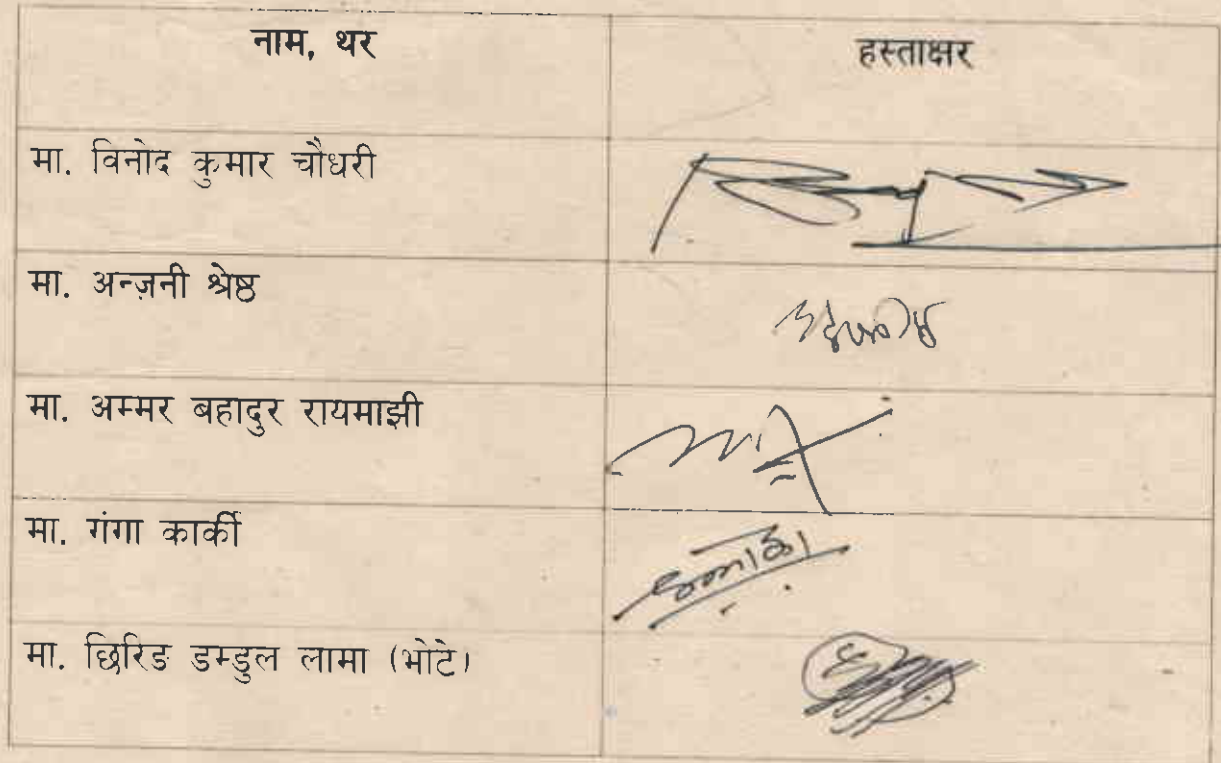 नाम, थर
हस्ताक्षर
मा. विनोद कुमार चौधरी
मा. अन्ज़नी श्रेष्ठ
मा. अम्मर बहादुर रायमाझी
मा. गंगा कार्की
मा. छिरिङ डम्डुल लामा (भोटे)